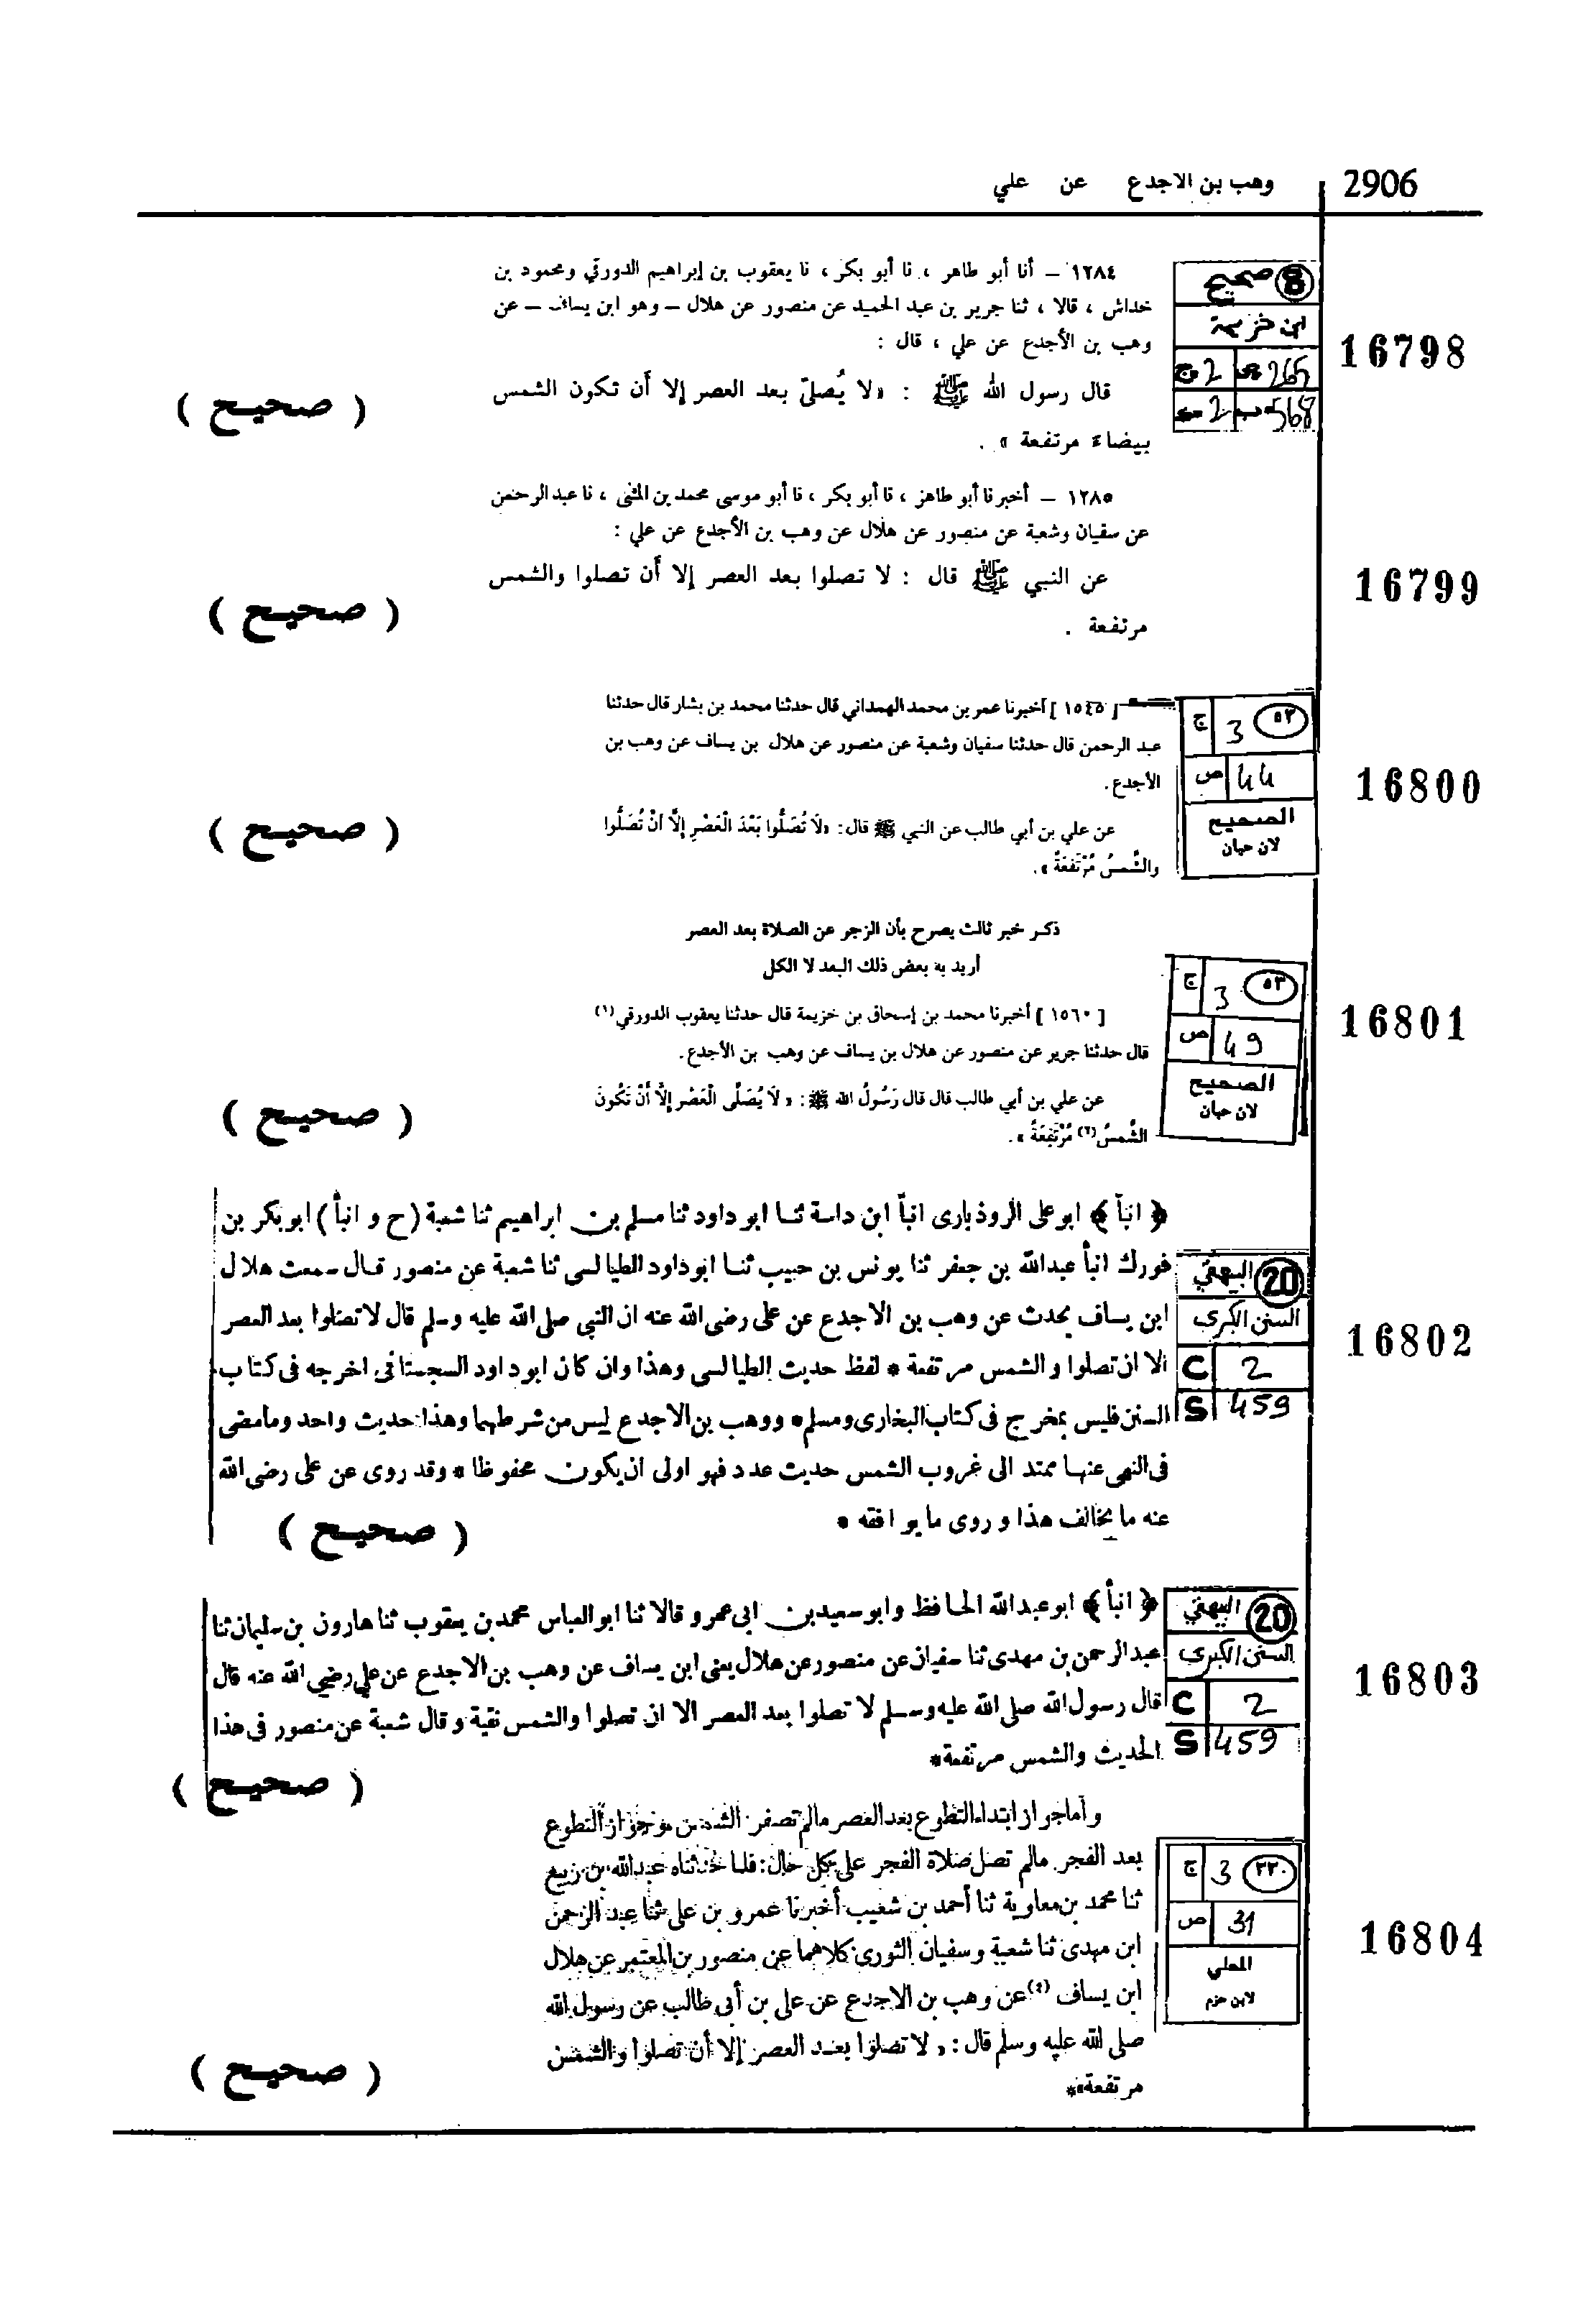 2906 وهب بن الاجدع عن علي
16798
8 صحيح
ابن خزيمة
ج 2 ص 265
2 568
١٢٨٤ – أنا أبو طاهر ، نا أبو بكر ، نا يعقوب بن إبراهيم الدورقي ومحمود بن
خداش ، قالا ، ثنا جرير بن عبد الحميد عن منصور عن هلال – وهو ابن يساف – عن
وهب بن الأجدع عن علي ، قال :
قال رسول الله ﷺ : «لا يُصلّى بعد العصر إلا أن تكون الشمس
بيضاء مرتفعة » .
( صحيح )
16799
١٢٨٥ – أخبرنا أبو طاهر ، نا أبو بكر ، نا أبو موسى محمد بن المثنى ، نا عبد الرحمن
عن سفيان وشعبة عن منصور عن هلال عن وهب بن الأجدع عن علي :
عن النبي ﷺ قال : لا تصلوا بعد العصر إلا أن تصلوا والشمس
مرتفعة .
( صحيح )
16800
٥٢ 3 ج
44 ص
الصحيح
لابن حبان
[ ١٥٤٥ ] أخبرنا عمر بن محمد الهمداني قال حدثنا محمد بن بشار قال حدثنا
عبد الرحمن قال حدثنا سفيان وشعبة عن منصور عن هلال بن يساف عن وهب بن
الأجدع.
عن علي بن أبي طالب عن النبي ﷺ قال: «لَا تُصَلُّوا بَعْدَ الْعَصْرِ إِلَّا أَنْ تُصَلُّوا
والشَّمسُ مُرْتَفِعَةٌ ».
( صحيح )
16801
٥٣ 3 ج
49 ص
الصحيح
لابن حبان
ذكر خبر ثالث يصرح بأن الزجر عن الصلاة بعد العصر
أريد به بعض ذلك البعد لا الكل
[ ١٥٦٠ ] أخبرنا محمد بن إسحاق بن خزيمة قال حدثنا يعقوب الدورقي(١)
قال حدثنا جرير عن منصور عن هلال بن يساف عن وهب بن الأجدع.
عن علي بن أبي طالب قال قال رَسُولُ الله ﷺ: «لَا يُصَلَّى الْعَصْر إِلَّا أَنْ تَكُونَ
الشَّمسُ(٢) مُرْتَفِعَةٌ ».
( صحيح )
16802
20 البيهقي
السنن الكبرى
C 2
S 459
﴿ انبأ ﴾ ابو على الروذبارى انبأ ابن داسة ثنا ابو داود ثنا مسلم بن ابراهيم ثنا شعبة (ح و انبأ) ابو بكر بن
فورك انبأ عبدالله بن جعفر ثنا يونس بن حبيب ثنا ابو داود الطيالسى ثنا شعبة عن منصور قال سمعت هلال
ابن يساف يحدث عن وهب بن الاجدع عن على رضى الله عنه ان النبي صلى الله عليه وسلم قال لا تصلوا بعد العصر
الا ان تصلوا والشمس مرتفعة * لفظ حديث الطيالسى وهذا وان كان ابو داود السجستانى اخرجه فى كتاب
السنن فليس بمخرج فى كتاب البخارى ومسلم* ووهب بن الاجدع ليس من شرطهما وهذا حديث واحد وما مضى
فى النهى عنها ممتد الى غروب الشمس حديث عدد فهو اولى ان يكون محفوظا * وقد روى عن على رضى الله
عنه ما يخالف هذا وروى ما يوافقه *
( صحيح )
16803
20 البيهقي
السنن الكبرى
C 2
S 459
﴿ انبأ ﴾ ابو عبدالله الحافظ وابو سعيد بن ابى عمرو قالا ثنا ابو العباس محمد بن يعقوب ثنا هارون بن سليمان ثنا
عبد الرحمن بن مهدى ثنا سفيان عن منصور عن هلال يعنى ابن يساف عن وهب بن الاجدع عن علي رضي الله عنه قال
قال رسول الله صلى الله عليه وسلم لا تصلوا بعد العصر الا ان تصلوا والشمس نقية وقال شعبة عن منصور فى هذا
الحديث والشمس مرتفعة*
( صحيح )
16804
٢٢٠ 3 ج
31 ص
المحلي
لابن حزم
وأما جواز ابتداء التطوع بعد العصر مالم تصفر الشمس وجواز التطوع
بعد الفجر مالم تصل صلاة الفجر على كل حال: فلما حدثناه عبدالله بن ربيع
ثنا محمد بن معاوية ثنا أحمد بن شعيب أخبرنا عمرو بن على ثنا عبد الرحمن
ابن مهدى ثنا شعبة وسفيان الثورى كلاهما عن منصور بن المعتمر عن هلال
ابن يساف (٤) عن وهب بن الاجدع عن على بن أبى طالب عن رسول الله
صلى الله عليه وسلم قال : « لا تصلوا بعد العصر إلا أن تصلوا والشمس
مرتفعة »*
( صحيح )